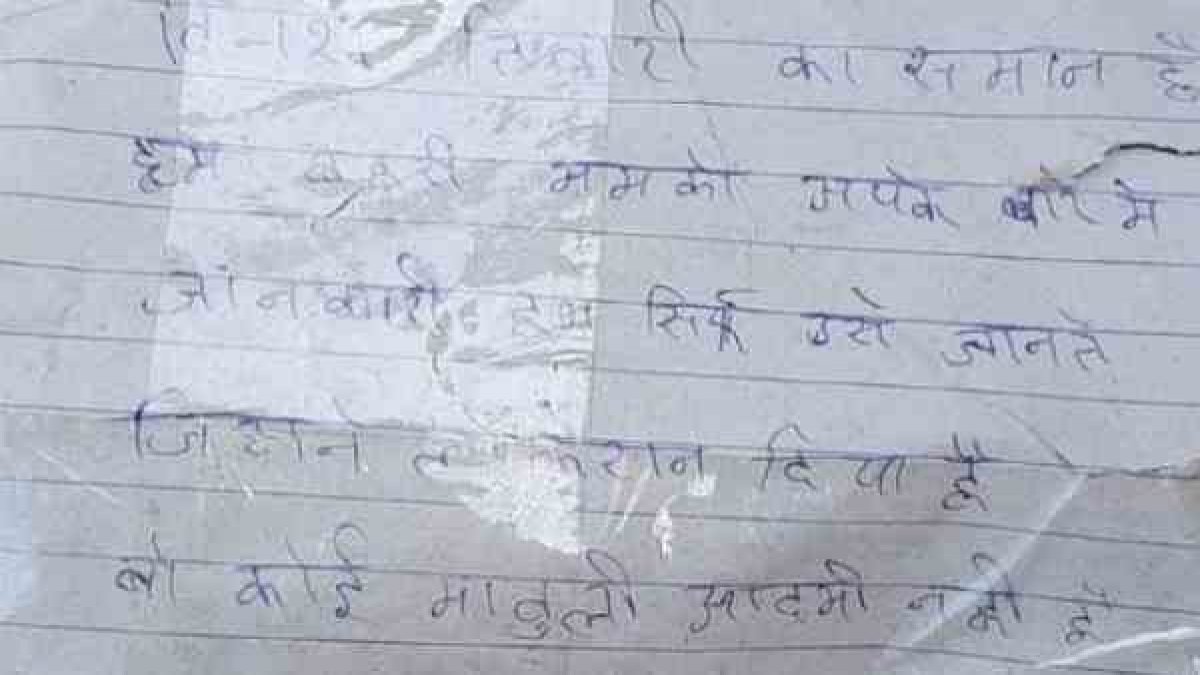 दि-12 तिजोरी का समान है
हम ममको अपके बारे मे
जानकारी हम सिर्फ उसे जानते
जिहोने दि या है
वो कोई माबुली आदमी नही है